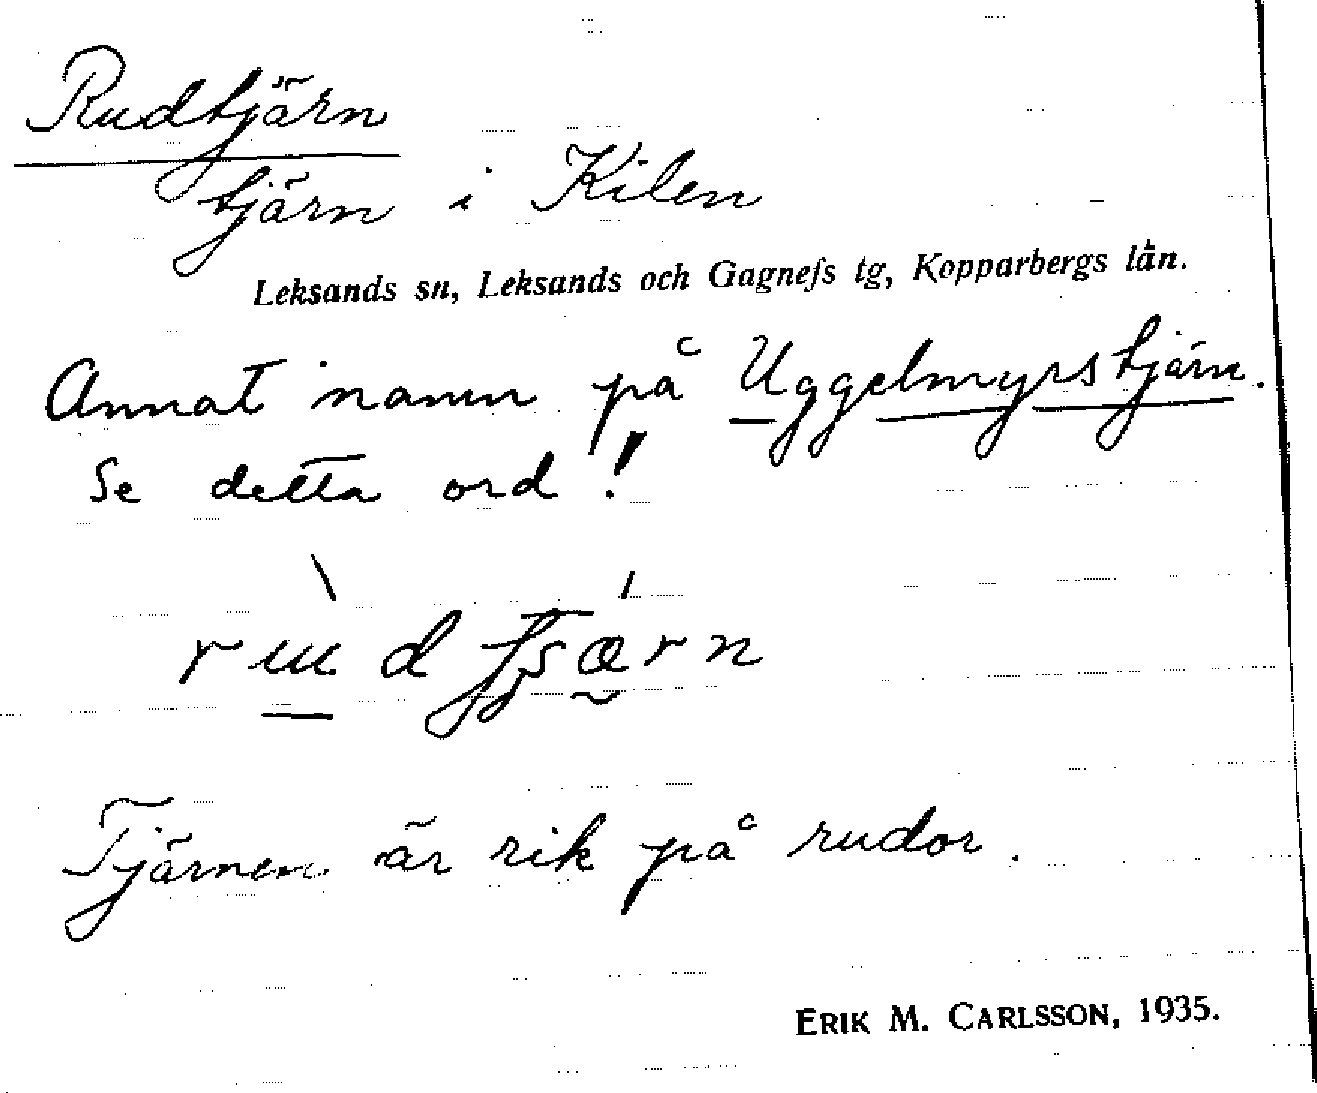 Rudtjärn
tjärn i Kilen
Leksands sn, Leksands och Gagnefs tg, Kopparbergs län.
Annat namn på Uggelmyrstjärn.
Se detta ord!
Tjärnen är rik på rudor.
ERIK M. CARLSSON, 1935.